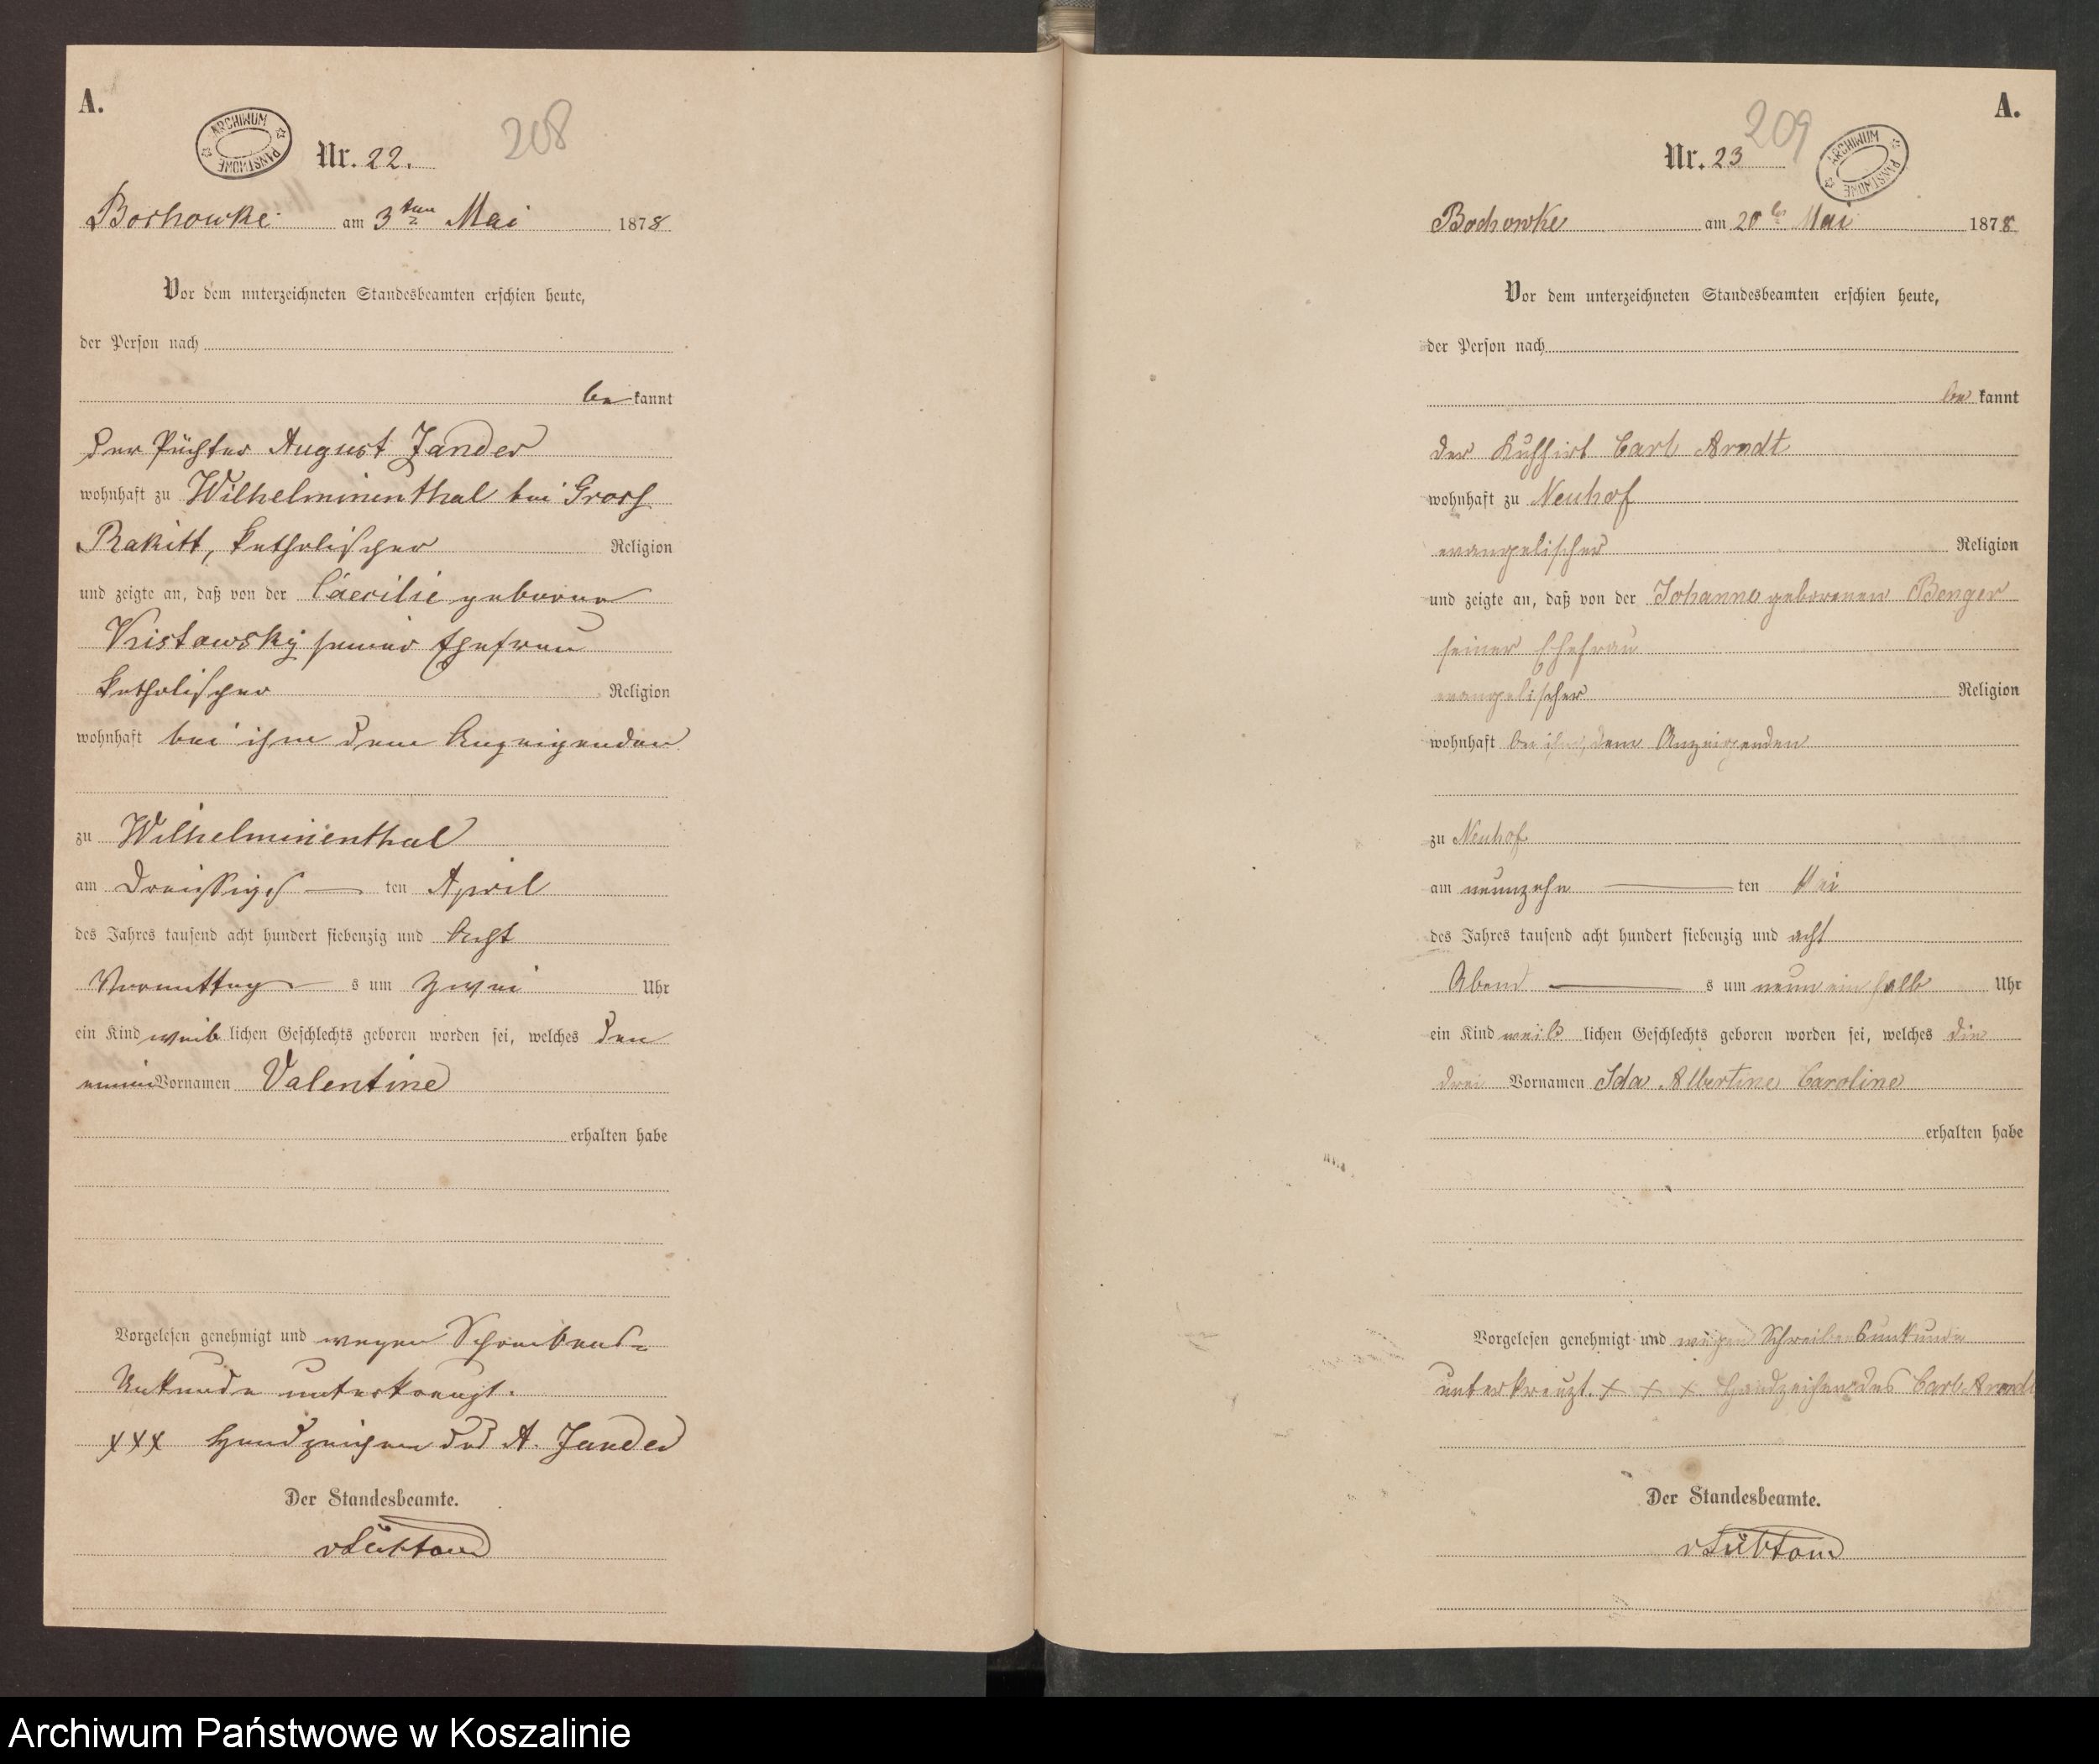 A.
ARCHIWUM PAŃSTWOWE
208
Nr. 22.
Bochowke am 3ten Mai 1878
Vor dem unterzeichneten Standesbeamten erschien heute,
der Person nach
be kannt
der Pächter August Jander
wohnhaft zu Wilhelminenthal bei Gross
Rakitt, katholischer Religion
und zeigte an, daß von der Caecilie geborene
Kristowsky seiner Ehefrau
katholischer Religion
wohnhaft bei ihm dem Anzeigenden
zu Wilhelminenthal
am dreißigs ten April
des Jahres tausend acht hundert siebenzig und Acht
Vormittag s um zwei Uhr
ein Kind weib lichen Geschlechts geboren worden sei, welches den
einen Vornamen Valentine
erhalten habe
Vorgelesen genehmigt und wegen Schreibens-
Unkunde unterkreuzt.
XXX Handzeichen des A. Jander
Der Standesbeamte.
A.
209
Nr. 23
ARCHIWUM PAŃSTWOWE
Bochowke am 20ten Mai 1878
Vor dem unterzeichneten Standesbeamten erschien heute,
der Person nach
be kannt
der Kuhhirt Carl Arndt
wohnhaft zu Neuhof
evangelischer Religion
und zeigte an, daß von der Johanne geborenen Benger
seiner Ehefrau
evangelischer Religion
wohnhaft bei ihm, dem Anzeigenden
zu Neuhof
am neunzehn ten Mai
des Jahres tausend acht hundert siebenzig und acht
Abend s um neun ein halb Uhr
ein Kind weib lichen Geschlechts geboren worden sei, welches die
drei Vornamen Ida Albertine Caroline
erhalten habe
Vorgelesen genehmigt und wegen Schreibensunkunde
unterkreuzt. X X X. Handzeichen des Carl Arndt
Der Standesbeamte.
Archiwum Państwowe w Koszalinie